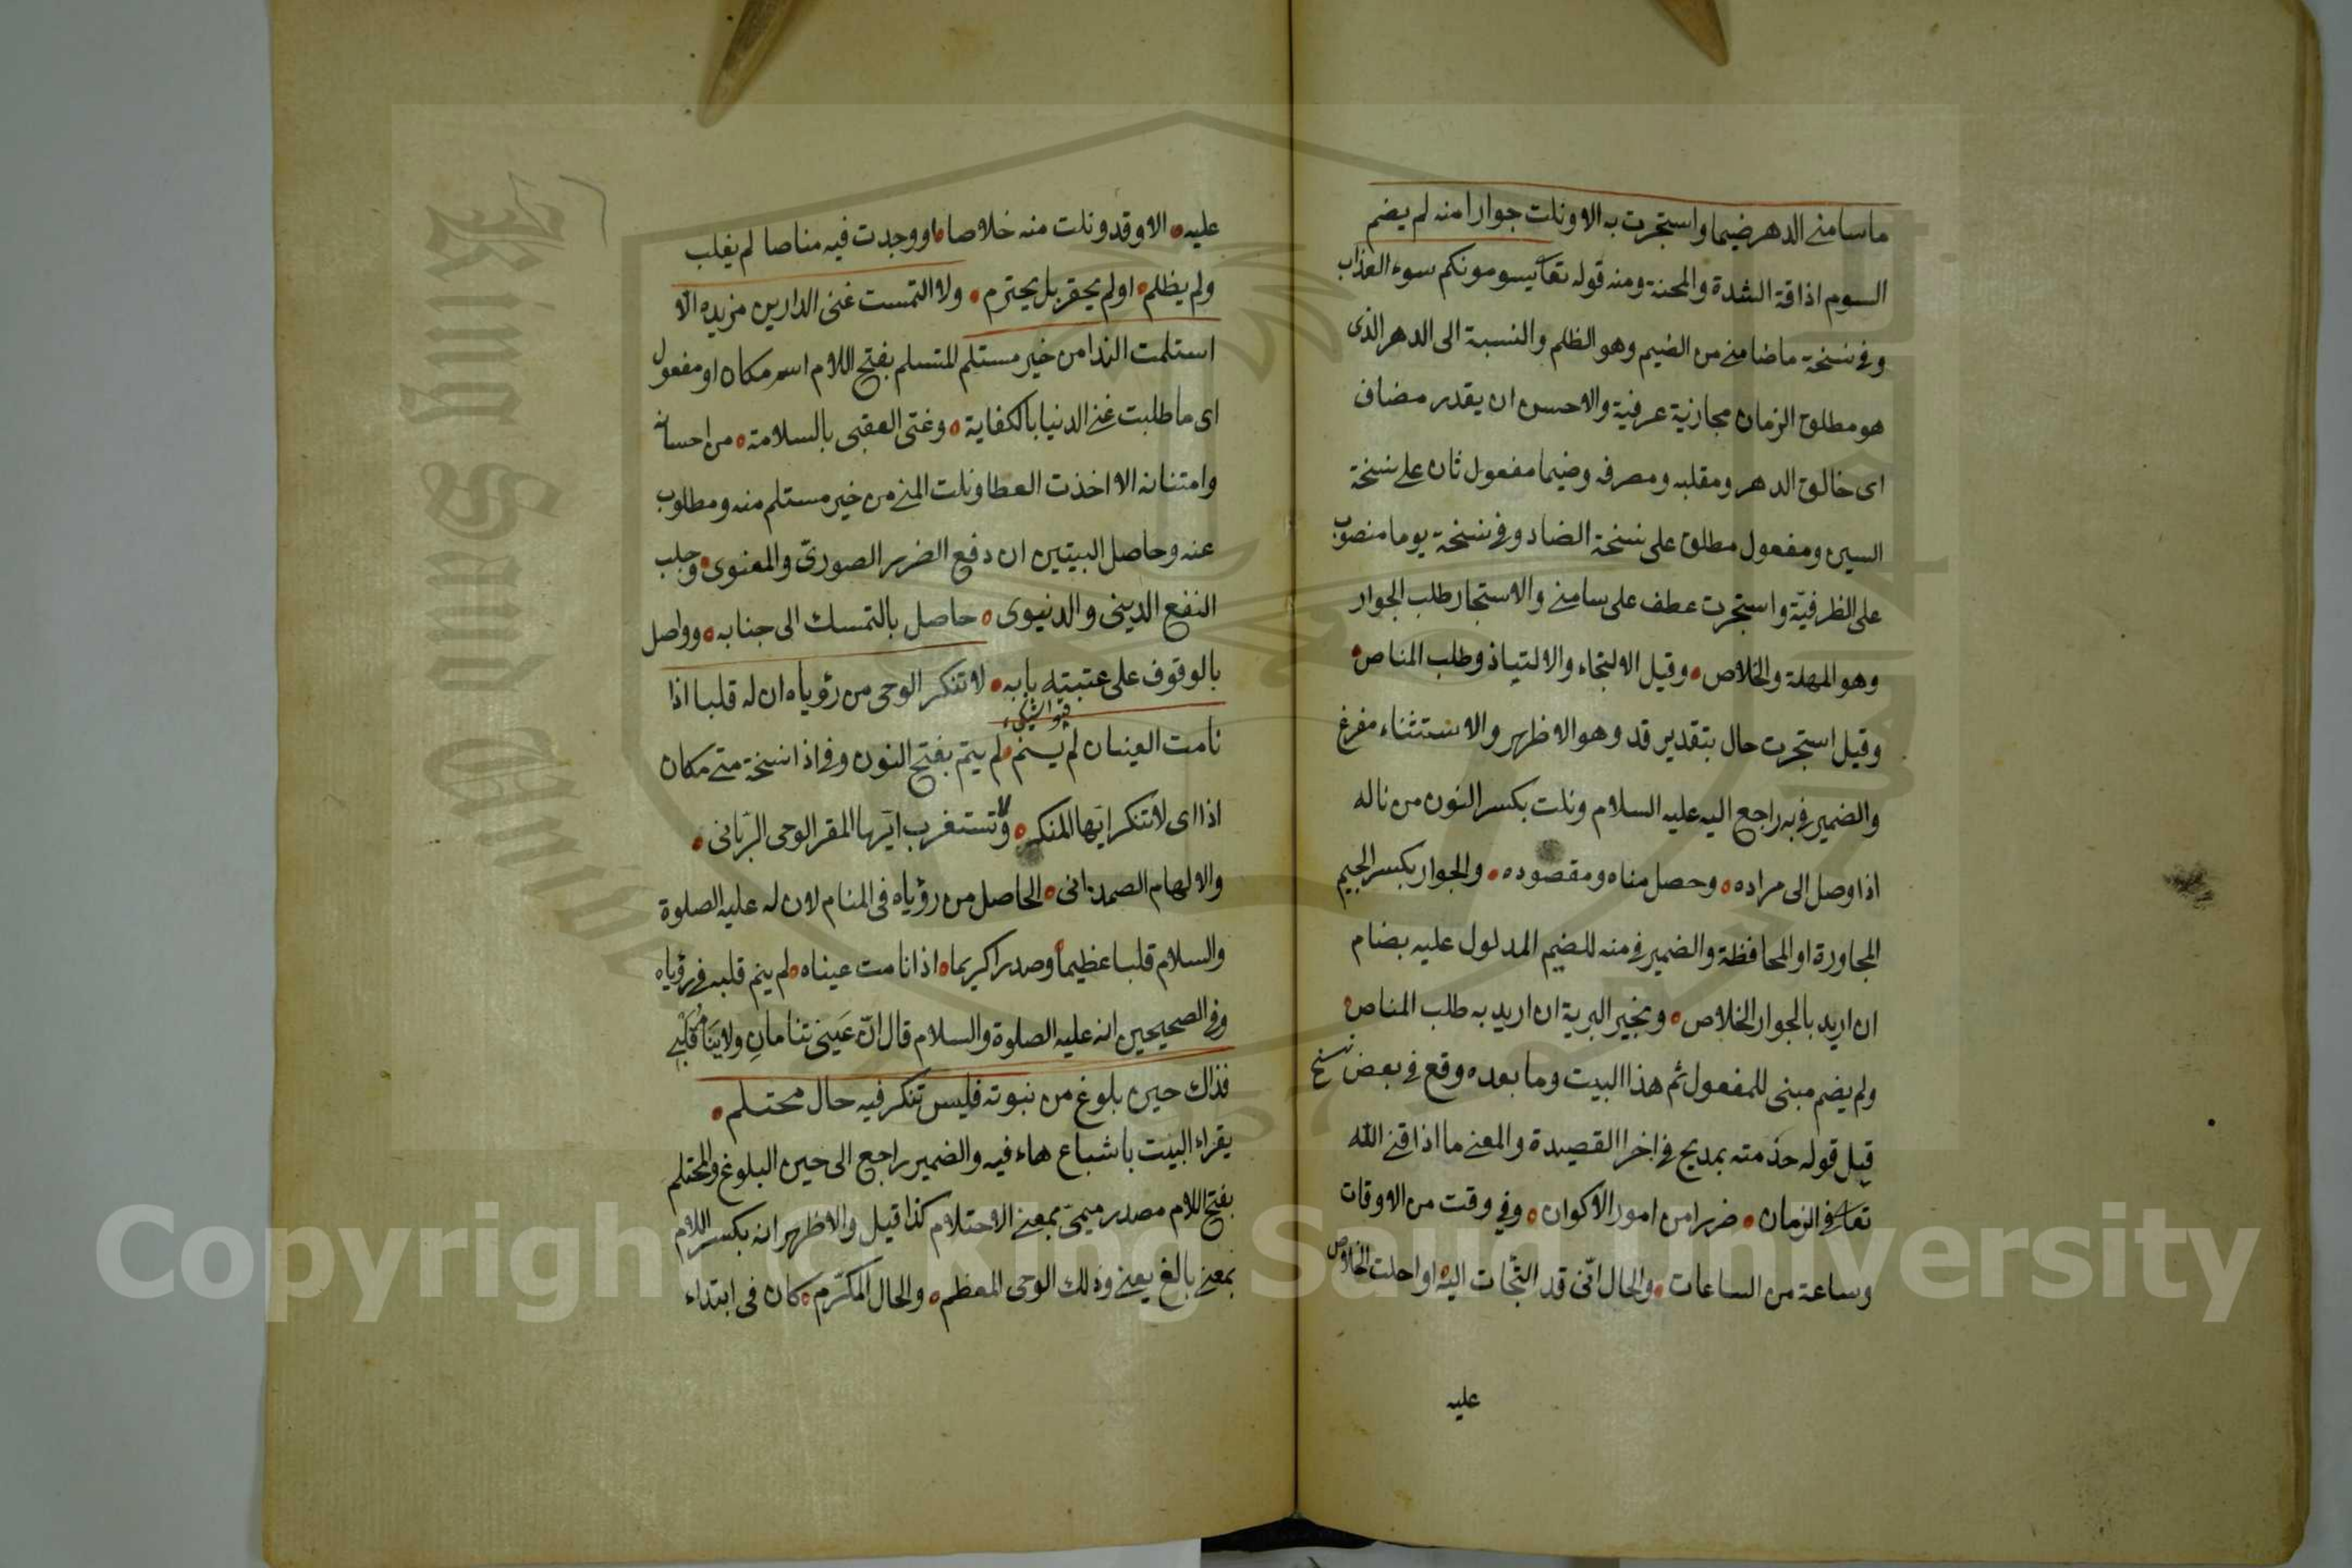 ما سامنے الدهر ضيما واستجرت به الا ونلت جوارا منه لم يضم
السوم اذاقة الشدة والمحنة ومنه قوله تعا يسومونكم سوء العذاب
وفي نسخة ما ضامنے من الضيم وهو الظلم والنسبة الى الدهر الذى
هو مطلق الزمان مجازية عرفية والاحسن ان يقدر مضاف
اى خالق الدهر ومقلبه ومصرفه وضيما مفعول ثان على نسخة
السين ومفعول مطلق على نسخة الضاد وفي نسخة يوما منصوب
على الظرفيّة واستجرت عطف على سامنے والاستجار طلب الجوار
وهو المهلة والخلاص وقيل الالتجاء والالتياذ وطلب المناص
وقيل استجرت حال بتقدير قد وهو الاظهر والاستثناء مفرغ
والضمير في به راجع اليه عليه السلام ونلت بكسر النون من ناله
اذا وصل الى مراده وحصل مناه ومقصوده والجوار بكسر الجيم
المجاورة او المحافظة والضمير في منه للضيم المدلول عليه بضام
ان اريد بالجوار الخلاص وبخير البرية ان اريد به طلب المناص
ولم يضم مبنى للمفعول ثم هذا البيت وما بعده وقع في بعض نسخ
قيل قوله خدمته بمديح في اخر القصيدة والمعنے ما اذاقنے الله
تعا في الزمان ضررا من امور الاكوان وفي وقت من الاوقات
وساعة من الساعات والحال انّى قد التجات اليه او احلت الخلاص
عليه
عليه الا وقد ونلت منه خلاصا ووجدت فيه مناصا لم يغلب
ولم يظلم او لم يحقر بل يحترم ولا التمست غنى الدارين من يده الّا
استلمت الندا من خير مستلم المتسلم بفتح اللام اسم مكان او مفعول
اى ما طلبت غنے الدنيا بالكفاية وغنى العقبى بالسلامة من احسانه
وامتنانه الا اخذت العطا ونلت المنے من خير مستلم منه ومطلوب
عنه وحاصل البيتين ان دفع الضرر الصورىّ والمعنوى وجلب
النفع الدينى والدنيوى حاصل بالتمسك الى جنابه وواصل
بالوقوف على عتبته بابه لا تنكر الوحى من رؤياه ان له قلبا اذا
نامت العينان لم ينم لم يتم بفتح النون وفي اذا نسخة متے مكان
اذا اى لا تنكر ايّها المنكر ولا تستغرب ايّها المقر الوحى الربّانى
والالهام الصمدانى الحاصل من رؤياه فى المنام لان له عليه الصلوة
والسلام قلبا عظيما وصدرا كريما اذا نامت عيناه لم ينم قلبه في رؤياه
وفي الصحيحين انه عليه الصلوة والسلام قال انّ عَينىّ تنامانِ ولا يَنامُ قَلبے
فذاك حين بلوغ من نبوته فليس تنكر فيه حال محتلم
يقراء البيت باشباع هاء فيه والضمير راجع الى حين البلوغ والمحتلم
بفتح اللام مصدر ميمىّ بمعنے الاحتلام كذا قيل والاظهر انه بكسر اللام
بمعنے بالغ يعنے وذلك الوحى المعظم والحال المكرّم كان فى ابتداء
Copyright © King Saud University
King Saud Unive